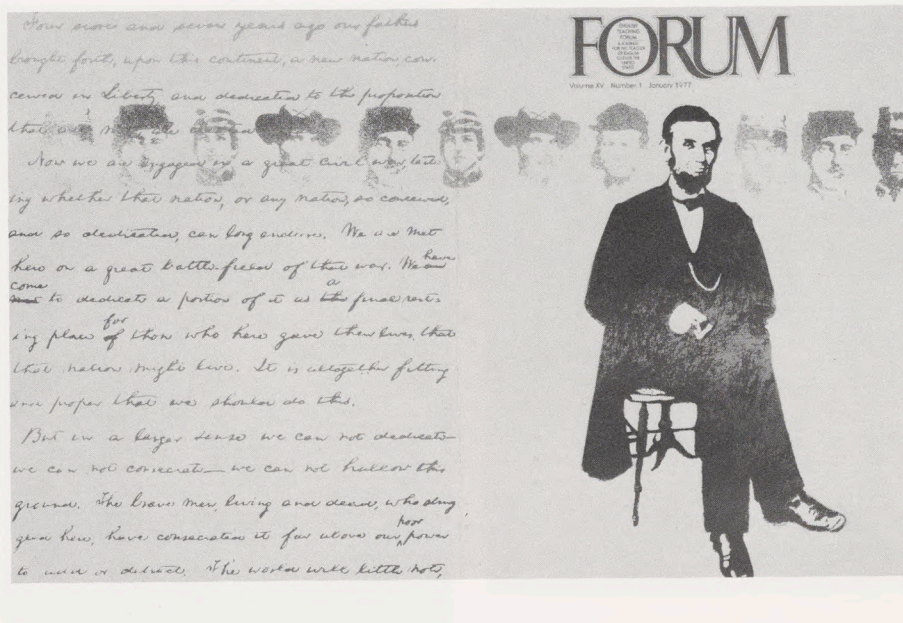 Four score and seven years ago our fathers
brought forth, upon this continent, a new nation, con-
ceived in Liberty, and dedicated to the proposition
that all men are created
Now we are engaged in a great civil war, test-
ing whether that nation, or any nation, so conceived,
and so dedicated, can long endure. We are met
here on a great battle-field of that war. We are
have
come
met to dedicate a portion of it as the final rest-
a
ing place of those who here gave their lives, that
for
that nation might live. It is altogether fitting
and proper that we should do this.
But in a larger sense we can not dedicate—
we can not consecrate— we can not hallow this
ground. The brave men, living and dead, who strug-
gled here, have consecrated it far above our power
poor
to add or detract. The world will little note,
FORUM
ENGLISH
TEACHING
FORUM
A JOURNAL
FOR THE TEACHER
OF ENGLISH
OUTSIDE THE
UNITED
STATES
Volume XV Number 1 January 1977